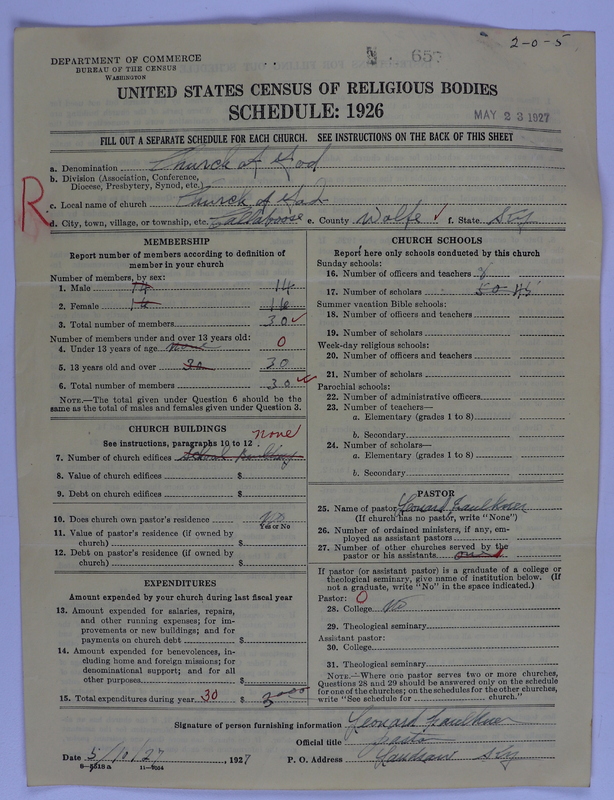 2-0-5
DEPARTMENT OF COMMERCE
BUREAU OF THE CENSUS
WASHINGTON
657
UNITED STATES CENSUS OF RELIGIOUS BODIES
SCHEDULE: 1926
MAY 23 1927
FILL OUT A SEPARATE SCHEDULE FOR EACH CHURCH. SEE INSTRUCTIONS ON THE BACK OF THIS SHEET
R
a. Denomination Church of God
b. Division (Association, Conference,
Diocese, Presbytery, Synod, etc.)
c. Local name of church Church of God
d. City, town, village, or township, etc. e. County Wolfe ✓ f. State Ky
MEMBERSHIP
Report number of members according to definition of
member in your church
Number of members, by sex:
1. Male 14 14
2. Female 16 16
3. Total number of members 30 ✓
Number of members under and over 13 years old:
4. Under 13 years of age none 0
5. 13 years old and over 30 30
6. Total number of members 30 ✓
NOTE.—The total given under Question 6 should be
same as the total of males and females given under Question 3.
CHURCH BUILDINGS
See instructions, paragraphs 10 to 12
none
7. Number of church edifices School Building
8. Value of church edifices $
9. Debt on church edifices $
10. Does church own pastor's residence No
Yes or No
11. Value of pastor's residence (if owned by
church) $
12. Debt on pastor's residence (if owned by
church) $
EXPENDITURES
Amount expended by your church during last fiscal year
13. Amount expended for salaries, repairs,
and other running expenses; for im-
provements or new buildings; and for
payments on church debt $
14. Amount expended for benevolences, in-
cluding home and foreign missions; for
denominational support; and for all
other purposes $
15. Total expenditures during year 30 $ 30.00
CHURCH SCHOOLS
Report here only schools conducted by this church
Sunday schools:
16. Number of officers and teachers
17. Number of scholars 50 45
Summer vacation Bible schools:
18. Number of officers and teachers
19. Number of scholars
Week-day religious schools:
20. Number of officers and teachers
21. Number of scholars
Parochial schools:
22. Number of administrative officers
23. Number of teachers—
a. Elementary (grades 1 to 8)
b. Secondary
24. Number of scholars—
a. Elementary (grades 1 to 8)
b. Secondary
PASTOR
25. Name of pastor Leonard Faulkner
(If church has no pastor, write "None")
26. Number of ordained ministers, if any, em-
ployed as assistant pastors
27. Number of other churches served by the
pastor or his assistants
If pastor (or assistant pastor) is a graduate of a college or
theological seminary, give name of institution below. (If
not a graduate, write "No" in the space indicated.)
Pastor: 0
28. College No
29. Theological seminary
Assistant pastor:
30. College
31. Theological seminary
NOTE.—Where one pastor serves two or more churches,
Questions 28 and 29 should be answered only on the schedule
for one of the churches; on the schedules for the other churches,
write "See schedule for church."
Signature of person furnishing information Leonard Faulkner
Official title Pastor
Date 5/10/27, 1927 P. O. Address Ky
8-5518a 11-9054